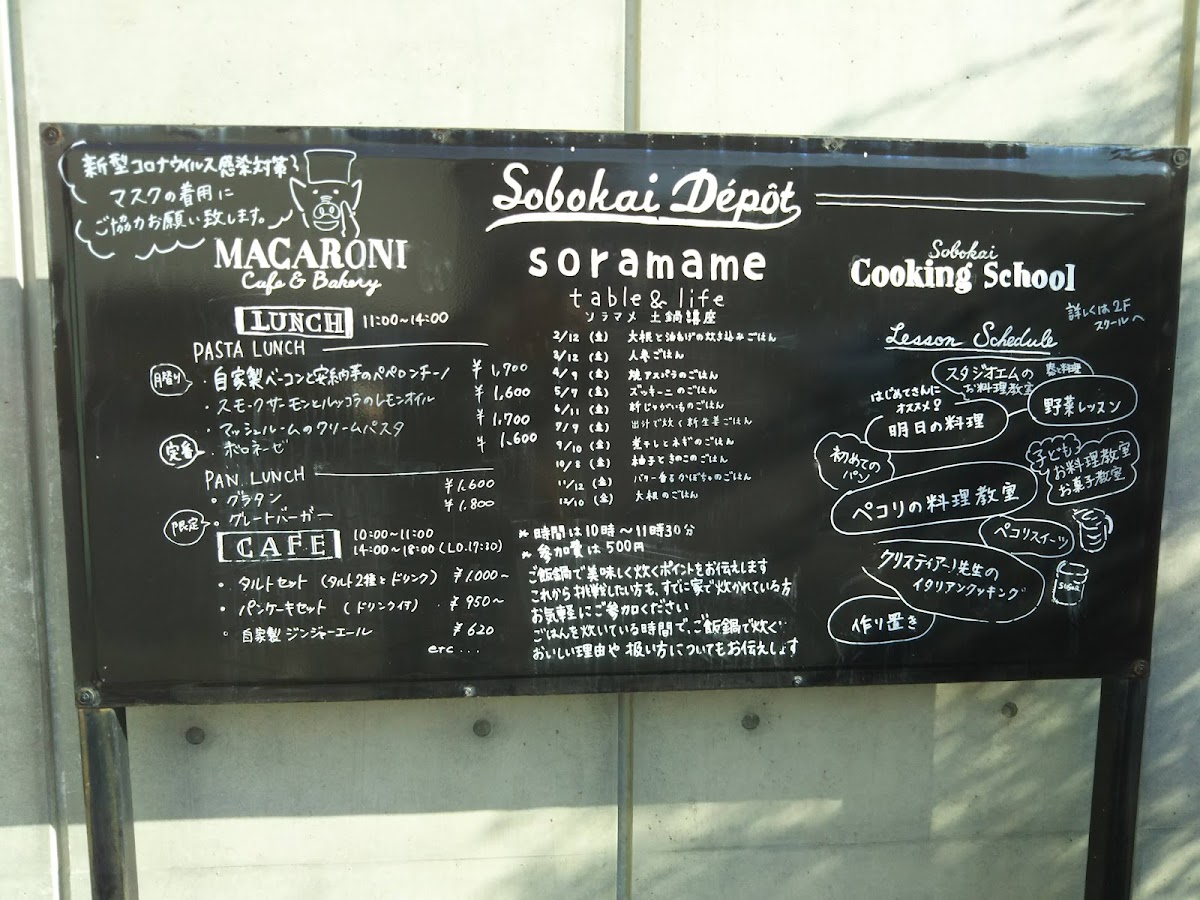 新型コロナウイルス感染対策
マスクの着用に
ご協力お願い致します。
MACARONI
Cafe & Bakery
LUNCH 11:00~14:00
PASTA LUNCH
月替り ・自家製ベーコンと安納芋のペペロンチーノ ¥1,700
・スモークサーモンとルッコラのレモンオイル ¥1,600
・マッシュルームのクリームパスタ ¥1,700
定番 ・ボロネーゼ ¥1,600
PAN LUNCH
・グラタン ¥1,600
限定 ・グレートバーガー ¥1,800
CAFE 10:00~11:00
14:00~18:00 (L.O.17:30)
・タルトセット (タルト2種とドリンク) ¥1,000~
・パンケーキセット (ドリンク付) ¥950~
・自家製ジンジャーエール ¥620
etc...
Sobokai Dépôt
soramame
table & life
ソラマメ 土鍋講座
2/12 (金) 大根と油あげの炊き込みごはん
3/12 (金) 人参ごはん
4/9 (金) 焼アスパラのごはん
5/7 (金) ズッキーニのごはん
6/11 (金) 新じゃがいものごはん
7/9 (金) 出汁で炊く新生姜ごはん
9/10 (金) 煮干しとねぎのごはん
10/8 (金) 柚子ときのこのごはん
11/12 (金) バター香るかぼちゃのごはん
12/10 (金) 大根のごはん
* 時間は10時~11時30分
* 参加費は500円
ご飯鍋で美味しく炊くポイントをお伝えします
これから挑戦したい方も、すでに家で炊かれている方
お気軽にご参加ください
ごはんを炊いている時間で、ご飯鍋で炊く
おいしい理由や扱い方についてもお伝えします
Sobokai
Cooking School
詳しくは2F
スクールへ
Lesson Schedule
スタジオエムの
お料理教室
はじめてさんに
オススメ!
明日の料理
野菜レッスン
初めての
パン
子ども
お料理教室
お菓子教室
ペコリの料理教室
ペコリスイーツ
クリスティアーノ先生の
イタリアンクッキング
SUGAR
作り置き